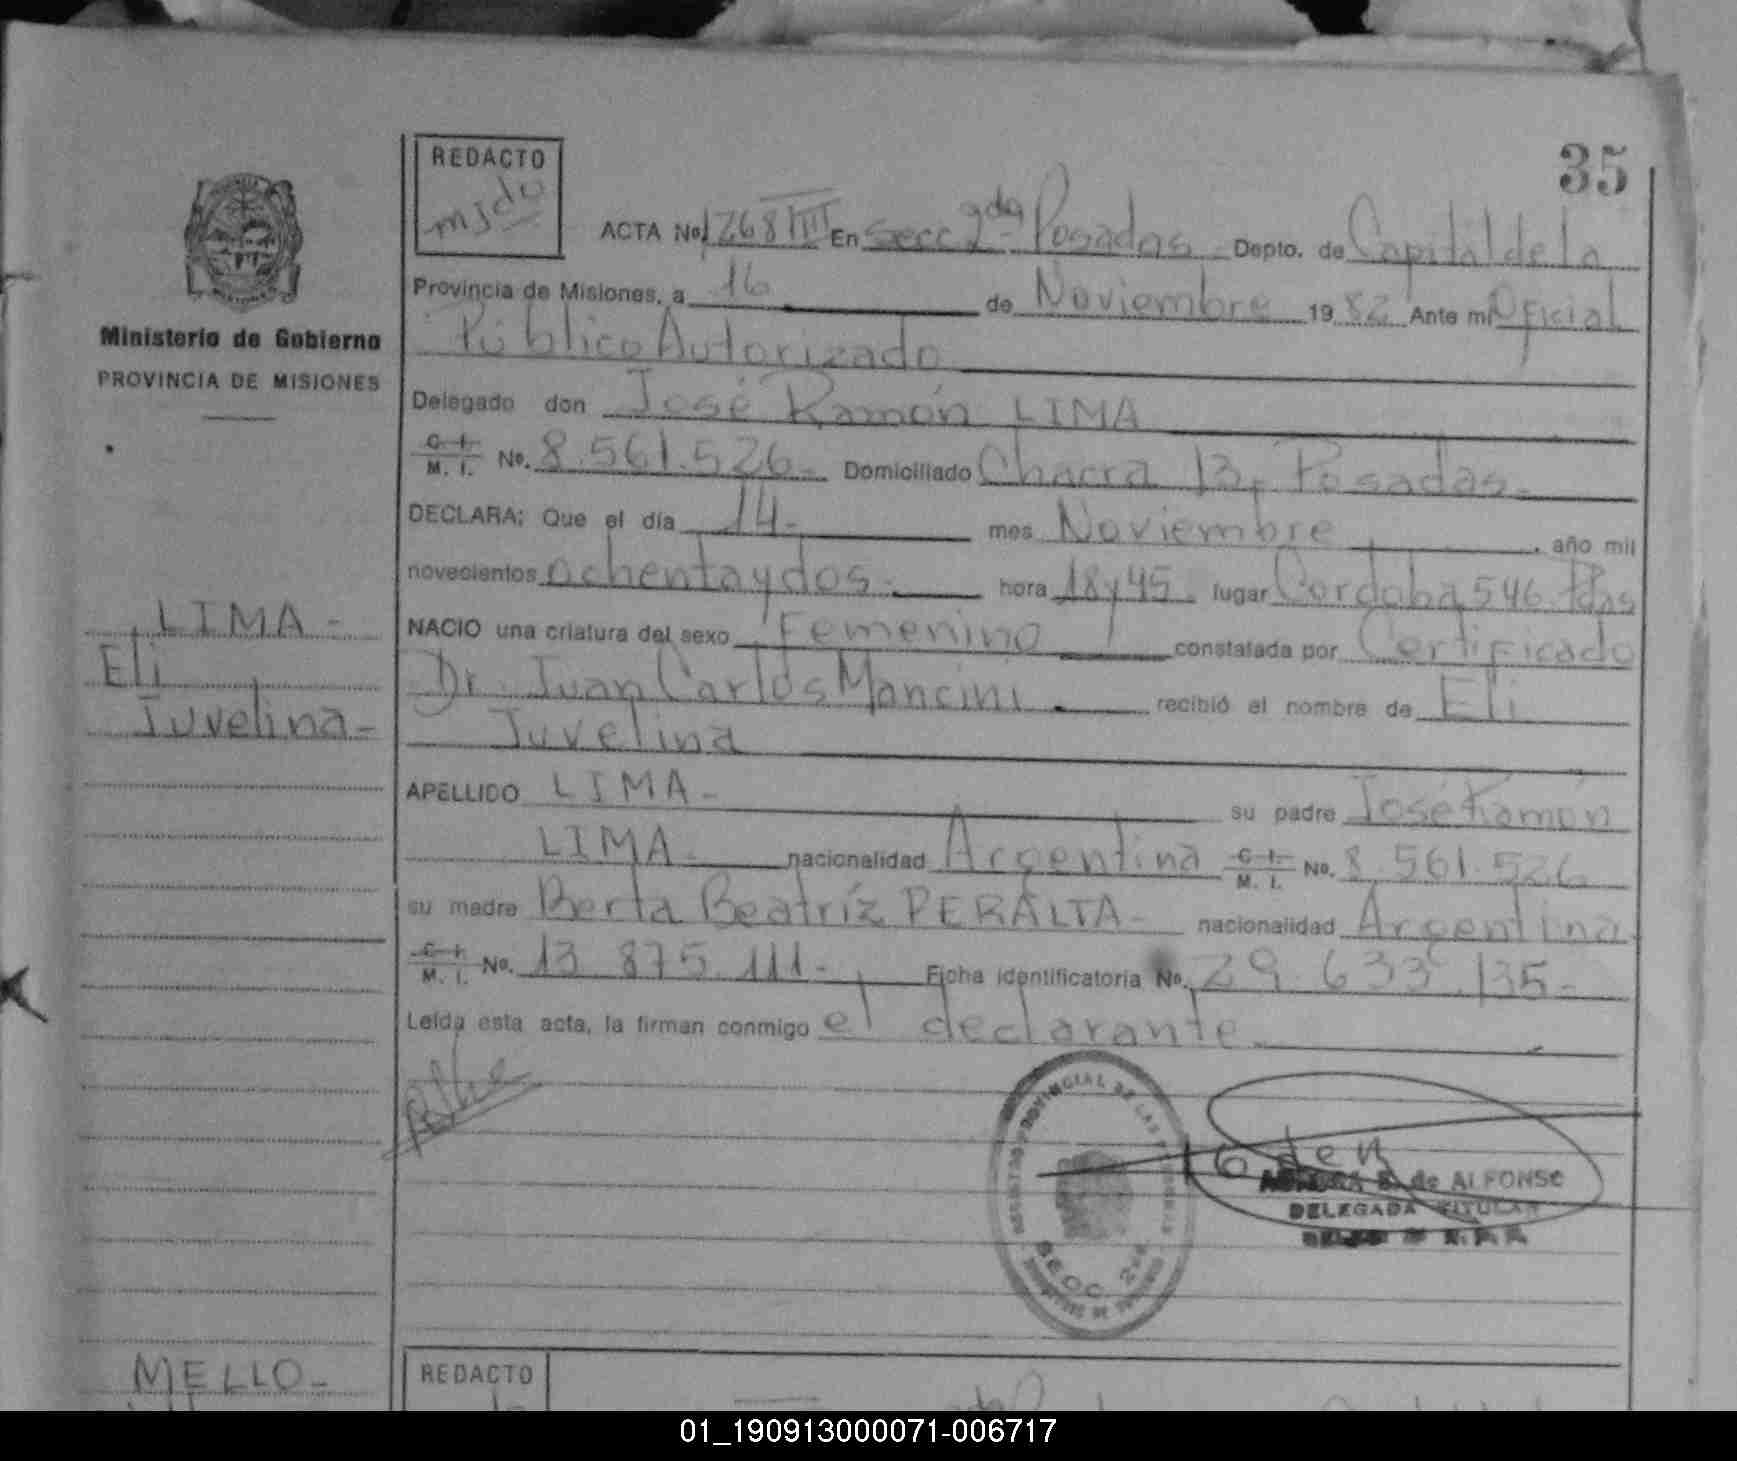 35
REDACTO
ACTA No. 1268 III En Secc 2da Posadas Depto. de Capital de la
Provincia de Misiones, a 16 de Noviembre 1982 Ante mí Oficial
Público Autorizado
Ministerio de Gobierno
PROVINCIA DE MISIONES
Delegado don José Ramón LIMA
C. I. M. I. No. 8.561.526- Domiciliado Chacra 13, Posadas-
DECLARA: Que el día 14- mes Noviembre año mil
novecientos ochenta y dos- hora 18 y 45 lugar Cordoba 546 Pdas
NACIO una criatura del sexo Femenino constatada por Certificado
Dr. Juan Carlos Mancini recibió el nombre de Eli
Juvelina
LIMA-
Eli
Juvelina-
APELLIDO LIMA- su padre José Ramón
LIMA- nacionalidad Argentina C. I. M. I. No. 8.561.526
su madre Berta Beatríz PERALTA- nacionalidad Argentina
C. I. M. I. No. 13.875.111- Ficha identificatoria No. 29.633.135-
Leída esta acta, la firman conmigo el declarante
PROVINCIAL DE LAS
SECC. 2da
de ALFONSO
DELEGADA TITULAR
MELLO-
REDACTO
01_190913000071-006717